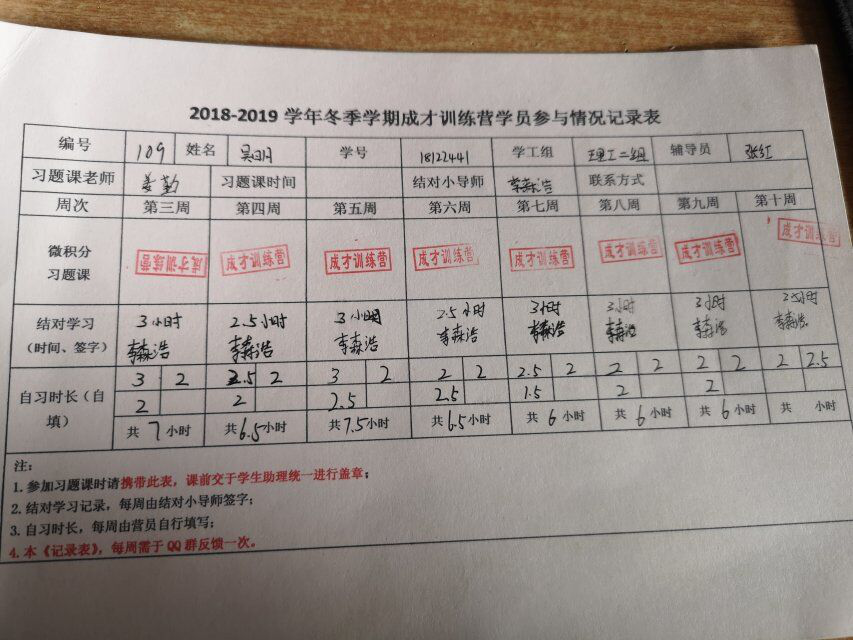 2018-2019 学年冬季学期成才训练营学员参与情况记录表
编号 109 姓名 学号 18122441 学工组 理工二组 辅导员 张红
习题课老师 姜勤 习题课时间 结对小导师 李森浩 联系方式
周次 第三周 第四周 第五周 第六周 第七周 第八周 第九周 第十周
微积分
习题课
成才训练营 成才训练营 成才训练营 成才训练营 成才训练营 成才训练营 成才训练营 成才训练营
结对学习 3小时 2.5小时 3小时 2.5小时 3小时 3小时 3小时 2.5小时
(时间、签字) 李森浩 李森浩 李森浩 李森浩 李森浩 李森浩 李森浩 李森浩
自习时长(自填)
3 2 2.5 2 3 2 2 2 2.5 2 2 2 2 2 2 2.5
2 2 2.5 2.5 1.5 2 2
共 7 小时 共6.5小时 共7.5小时 共6.5小时 共 6 小时 共 6 小时 共 6 小时 共 小时
注:
1.参加习题课时请携带此表,课前交于学生助理统一进行盖章;
2.结对学习记录,每周由结对小导师签字;
3.自习时长,每周由营员自行填写;
4.本《记录表》,每周需于QQ群反馈一次。